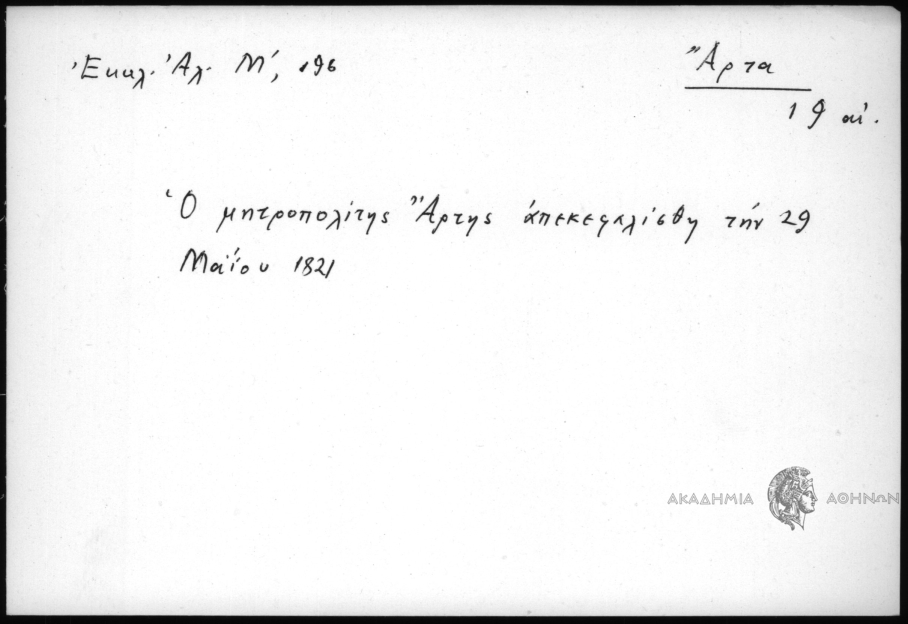 Ἐκκλ. Ἀλ. Μ', 196
Ἄρτα
19 αἰ.
Ὁ μητροπολίτης Ἄρτης ἀπεκεφαλίσθη τήν 29
Μαΐου 1821
ΑΚΑΔΗΜΙΑ ΑΘΗΝΩΝ